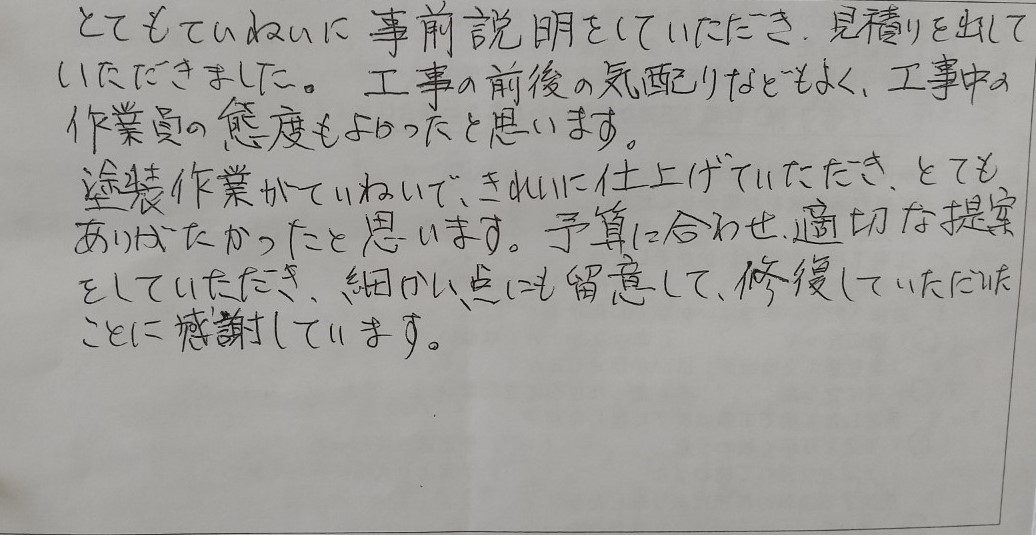 とてもていねいに事前説明をしていただき、見積りを出して
いただきました。 工事の前後の気配りなどもよく、工事中の
作業員の態度もよかったと思います。
塗装作業がていねいで、きれいに仕上げていただき、とても
ありがたかったと思います。予算に合わせ、適切な提案
をしていただき、細かい点にも留意して、修復していただいた
ことに感謝しています。